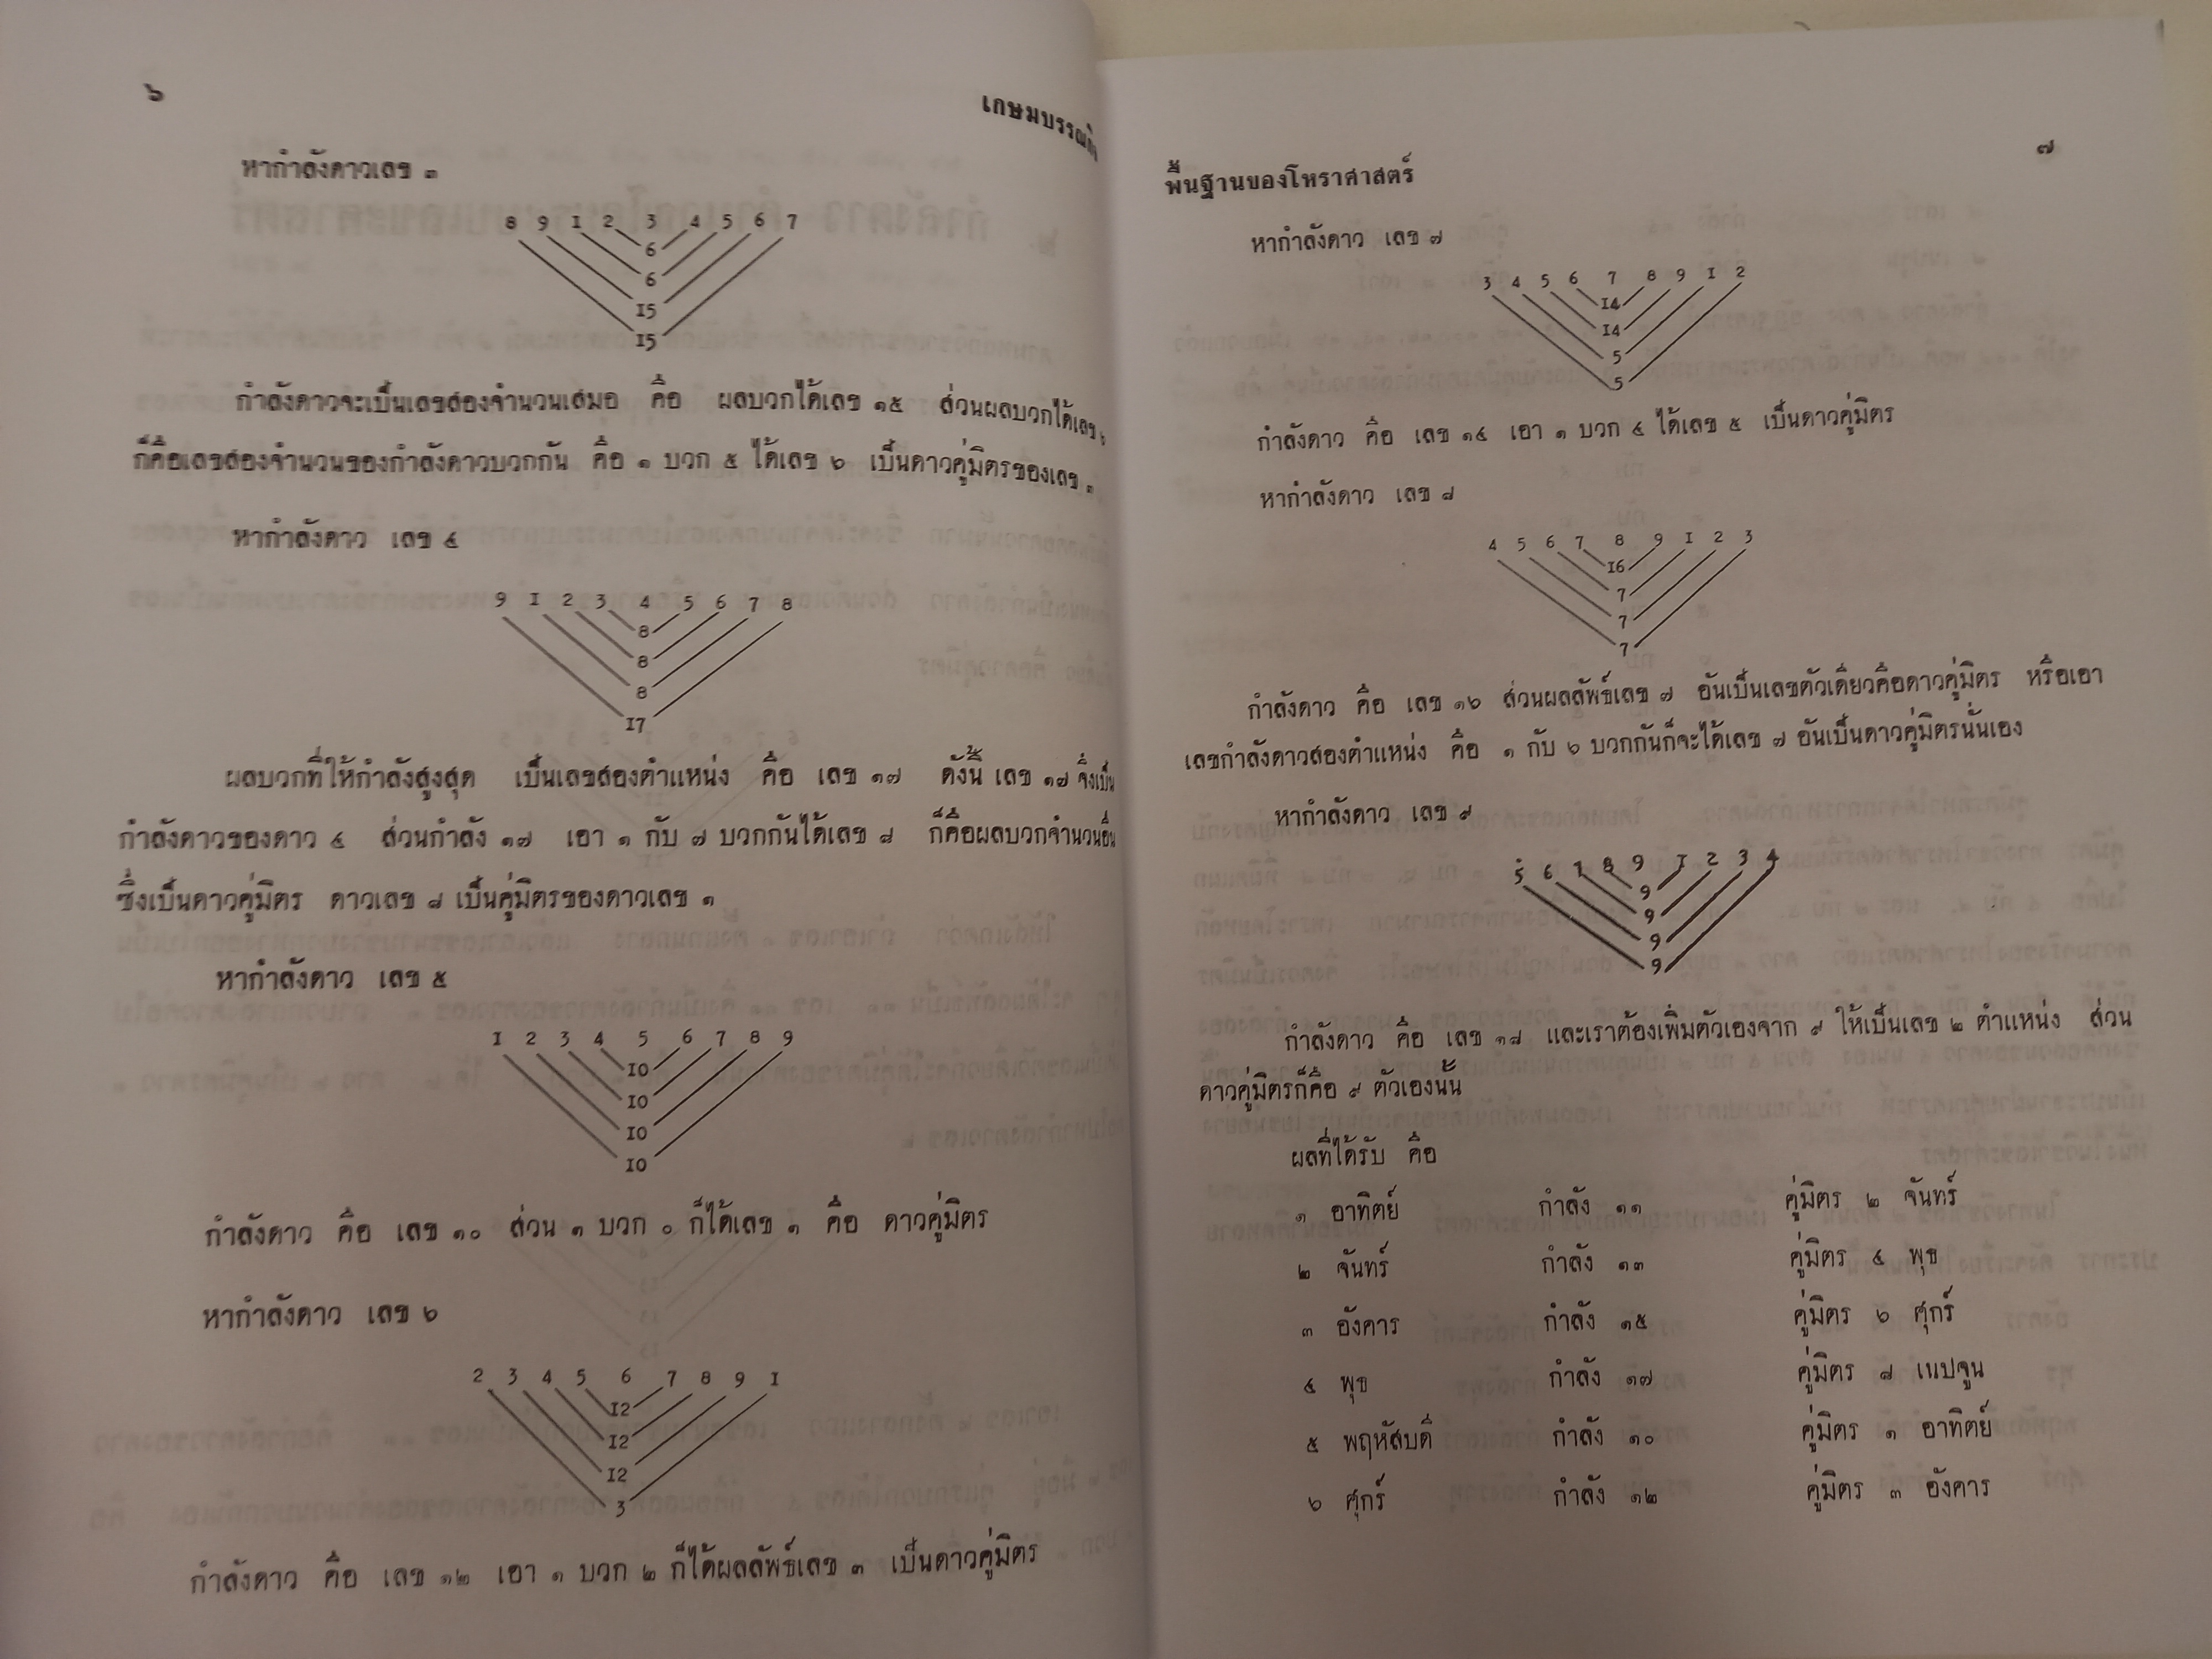 ๖
หากำลังดาวเลข ๓
8 9 1 2 3 4 5 6 7
6
6
15
15
กำลังดาวจะเป็นเลขสองจำนวนเสมอ คือ ผลบวกได้เลข ๑๕ ส่วนผลบวกได้เลข ๖
ก็คือเลขสองจำนวนของกำลังดาวบวกกัน คือ ๑ บวก ๕ ได้เลข ๖ เป็นดาวคู่มิตรของเลข ๓
หากำลังดาว เลข ๔
9 1 2 3 4 5 6 7 8
8
8
8
17
ผลบวกที่ให้กำลังสูงสุด เป็นเลขสองตำแหน่ง คือ เลข ๑๗ ดังนี้ เลข ๑๗ จึงเป็น
กำลังดาวของดาว ๔ ส่วนกำลัง ๑๗ เอา ๑ กับ ๗ บวกกันได้เลข ๘ ก็คือผลบวกจำนวนอื่น
ซึ่งเป็นดาวคู่มิตร ดาวเลข ๘ เป็นคู่มิตรของดาวเลข ๑
หากำลังดาว เลข ๕
1 2 3 4 5 6 7 8 9
10
10
10
10
กำลังดาว คือ เลข ๑๐ ส่วน ๑ บวก ๐ ก็ได้เลข ๑ คือ ดาวคู่มิตร
หากำลังดาว เลข ๖
2 3 4 5 6 7 8 9 1
12
12
12
3
กำลังดาว คือ เลข ๑๒ เอา ๑ บวก ๒ ก็ได้ผลลัพธ์เลข ๓ เป็นดาวคู่มิตร
พื้นฐานของโหราศาสตร์
๗
หากำลังดาว เลข ๗
3 4 5 6 7 8 9 1 2
14
14
5
5
กำลังดาว คือ เลข ๑๔ เอา ๑ บวก ๔ ได้เลข ๕ เป็นดาวคู่มิตร
หากำลังดาว เลข ๘
4 5 6 7 8 9 1 2 3
16
7
7
7
กำลังดาว คือ เลข ๑๖ ส่วนผลลัพธ์เลข ๗ อันเป็นเลขตัวเดียวคือดาวคู่มิตร หรือเอา
เลขกำลังดาวสองตำแหน่ง คือ ๑ กับ ๖ บวกกันก็จะได้เลข ๗ อันเป็นดาวคู่มิตรนั่นเอง
หากำลังดาว เลข ๙
5 6 7 8 9 1 2 3 4
9
9
9
9
กำลังดาว คือ เลข ๑๘ และเราต้องเพิ่มตัวเองจาก ๙ ให้เป็นเลข ๒ ตำแหน่ง ส่วน
ดาวคู่มิตรก็คือ ๙ ตัวเองนั้น
ผลที่ได้รับ คือ
๑ อาทิตย์ กำลัง ๑๑ คู่มิตร ๒ จันทร์
๒ จันทร์ กำลัง ๑๓ คู่มิตร ๔ พุธ
๓ อังคาร กำลัง ๑๕ คู่มิตร ๖ ศุกร์
๔ พุธ กำลัง ๑๗ คู่มิตร ๘ เนปจูน
๕ พฤหัสบดี กำลัง ๑๐ คู่มิตร ๑ อาทิตย์
๖ ศุกร์ กำลัง ๑๒ คู่มิตร ๓ อังคาร